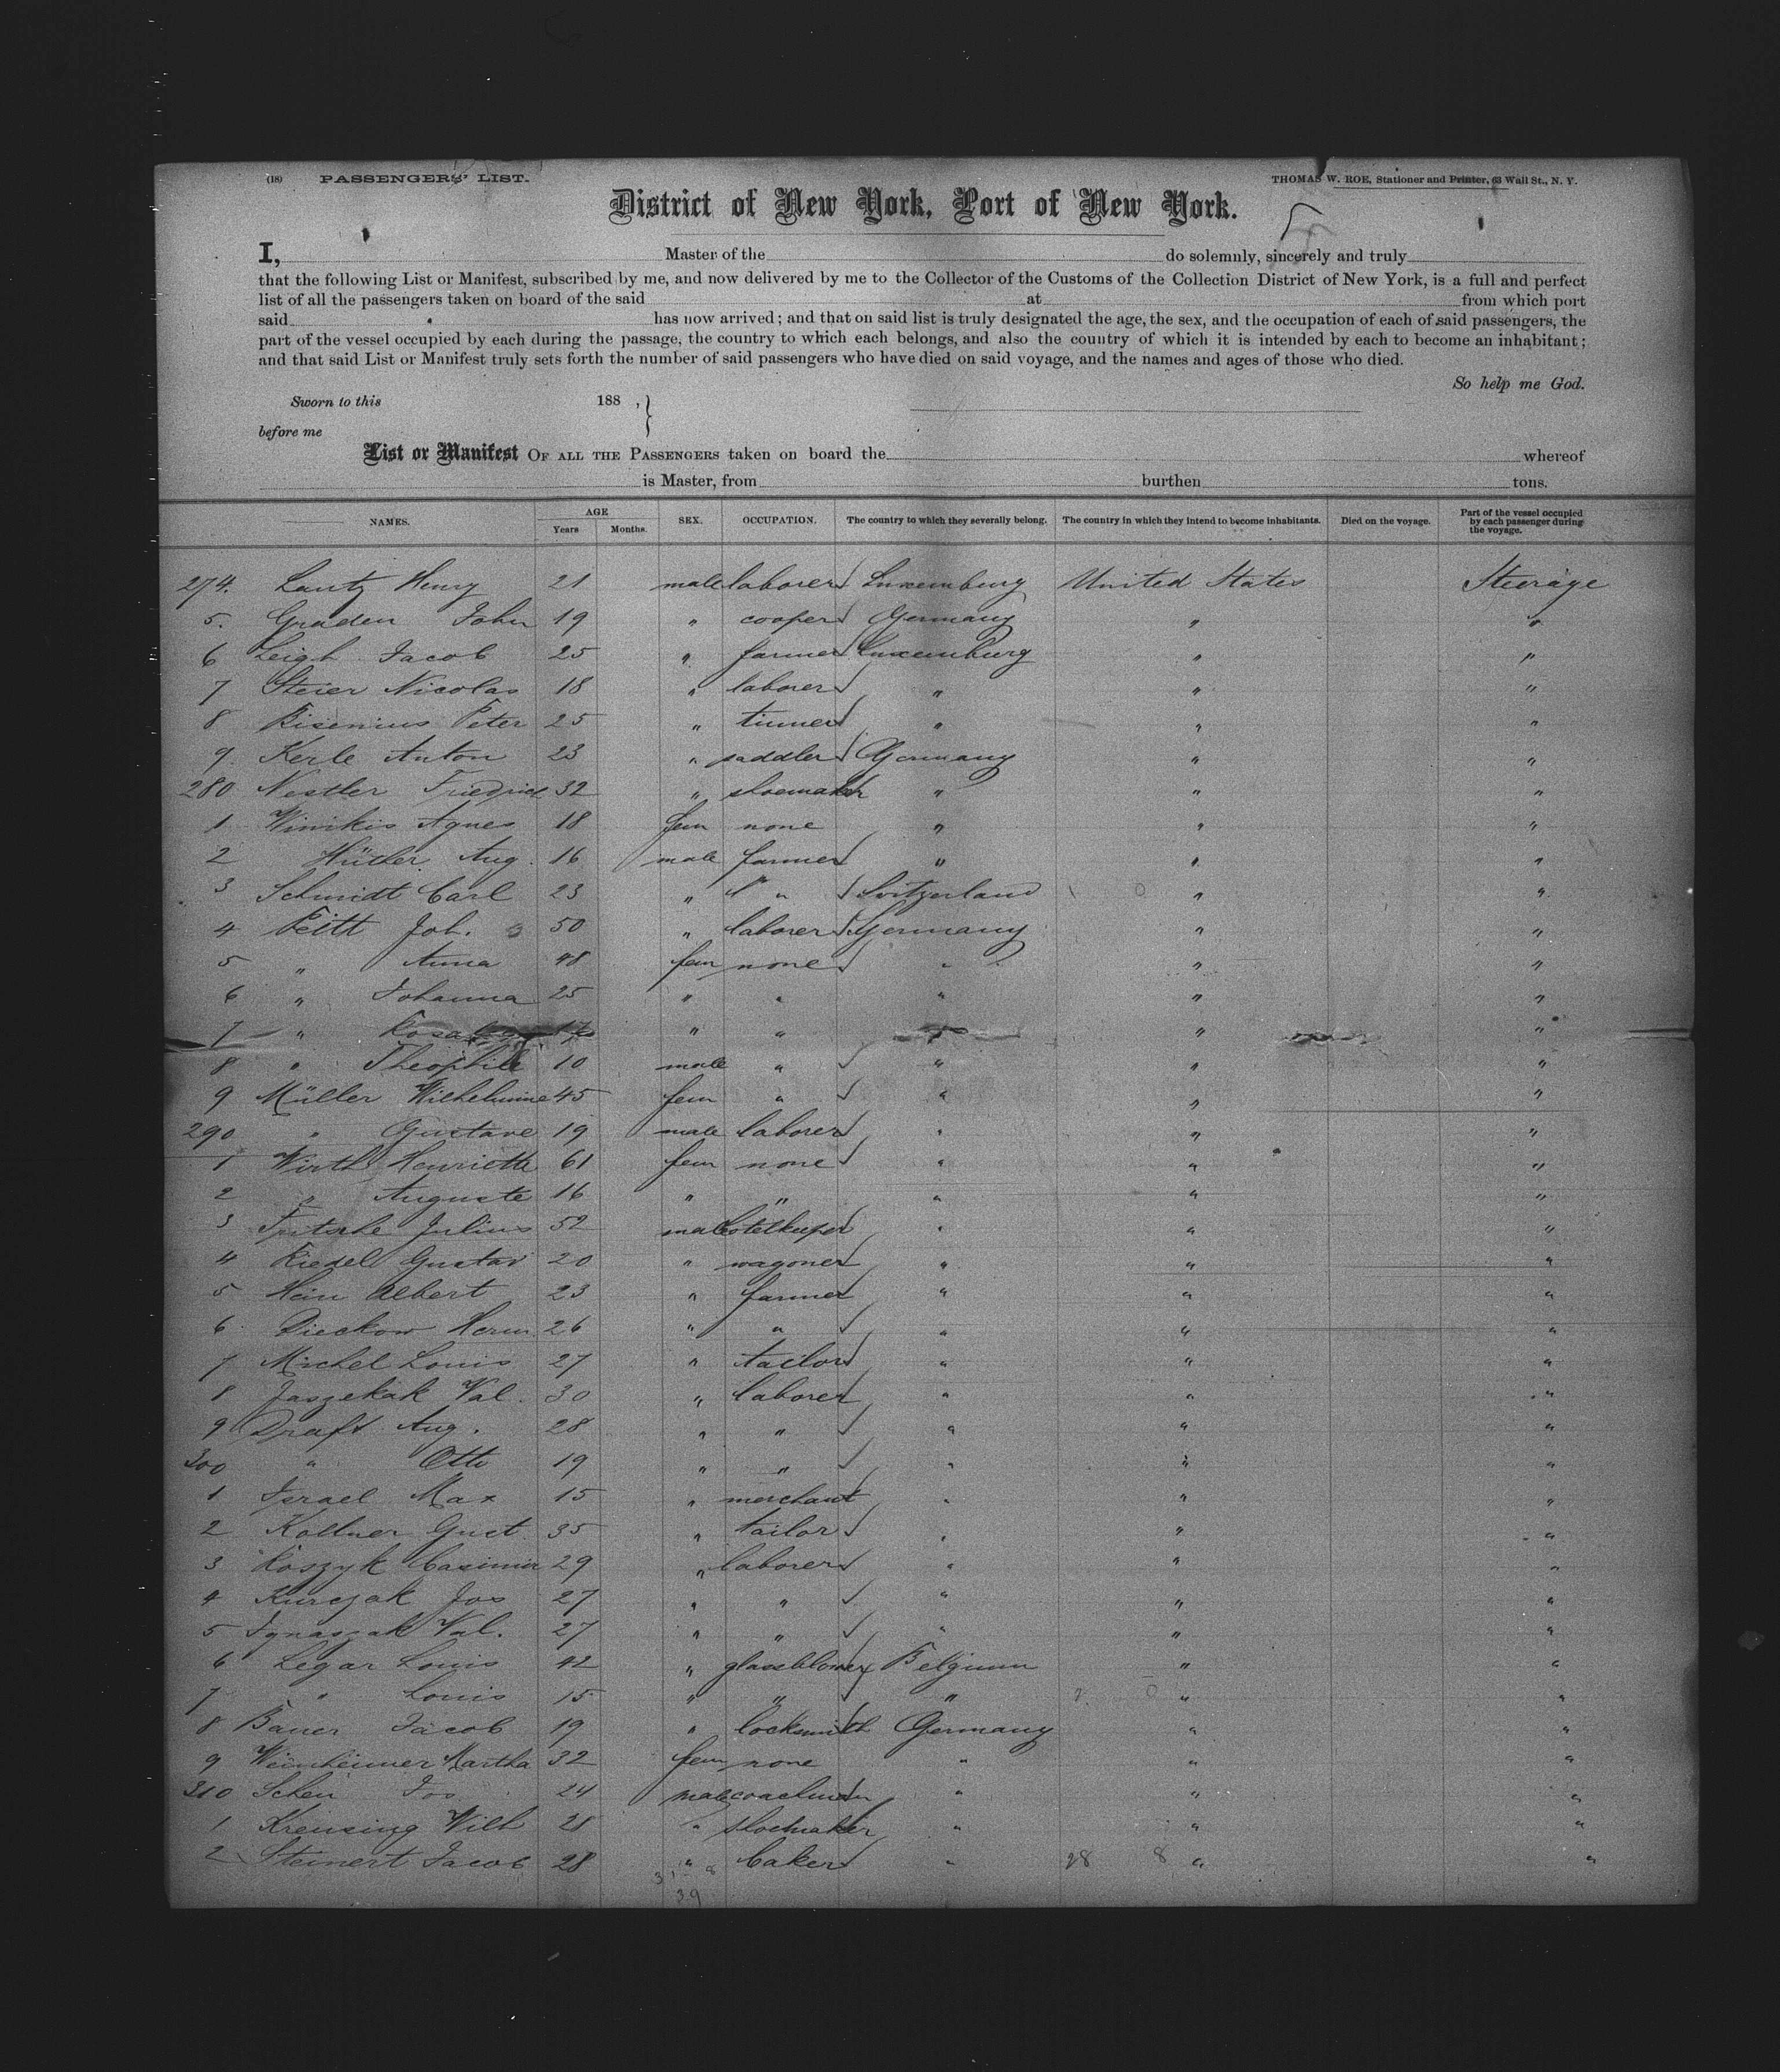 (18) PASSENGERS' LIST. THOMAS W. ROE, Stationer and Printer, 63 Wall St., N. Y.
District of New York, Port of New York.
I, Master of the do solemnly, sincerely and truly
that the following List or Manifest, subscribed by me, and now delivered by me to the Collector of the Customs of the Collection District of New York, is a full and perfect
list of all the passengers taken on board of the said at from which port
said has now arrived; and that on said list is truly designated the age, the sex, and the occupation of each of said passengers, the
part of the vessel occupied by each during the passage, the country to which each belongs, and also the country of which it is intended by each to become an inhabitant;
and that said List or Manifest truly sets forth the number of said passengers who have died on said voyage, and the names and ages of those who died.
So help me God.
Sworn to this 188 ,
before me
List or Manifest OF ALL THE PASSENGERS taken on board the whereof
is Master, from burthen tons.
NAMES. AGE Years Months. SEX. OCCUPATION. The country to which they severally belong. The country in which they intend to become inhabitants. Died on the voyage. Part of the vessel occupied by each passenger during the voyage.
274. Lautz Henry 21 male laborer Luxemburg United States Steerage
5. Graden John 19 " cooper Germany " "
6 Leigh Jacob 25 " farmer Luxemburg " "
7 Steier Nicolas 18 " laborer " " "
8 Bisenius Peter 25 " tinner " " "
9. Kerle Anton 23 " saddler Germany " "
280 Nestler Friedrich 32 " shoemaker " " "
1 Winikis Agnes 18 fem none " " "
2 Aug. 16 male farmer " " "
3 Schmidt Carl 23 " " Switzerland " "
4 Joh. 50 " laborer Germany " "
5 " Anna 48 fem none " " "
6 " Johanna 25 " " " " "
7 " " " " "
8 " Theophile 10 male " " " "
9 Müller Wilhelmine 45 fem " " " "
290 " Gustave 19 male laborer " " "
1 Wirth Henriette 61 fem none " " "
2 " Auguste 16 " " " " "
3 Fritsche Julius 52 male hotelkeeper " " "
4 Riedel Gustav 20 " wagoner " " "
5 Hein Albert 23 " farmer " " "
6 Dieckow Herm 26 " " " " "
7 Michel Louis 27 " tailor " " "
8 Jaszekak Val. 30 " laborer " " "
9 Draft Aug. 28 " " " " "
300 " Otto 19 " " " " "
1 Israel Max 15 " merchant " " "
2 Kollner Gust. 35 " tailor " " "
3 Koszyk Casimir 29 " laborer " " "
4 Kurczak Jos 27 " " " " "
5 Ignaszak Val. 27 " " " " "
6 Legar Louis 42 " glassblower Belgium " "
7 " Louis 15 " " " " "
8 Bauer Jacob 19 " locksmith Germany " "
9 Weinheimer Martha 32 fem none " " "
310 Scheu Jos 24 male coachman " " "
1 Kreusing Wilh 28 " shoemaker " " "
2 Steinert Jacob 28 " baker " 28 8 " "
31 8
39